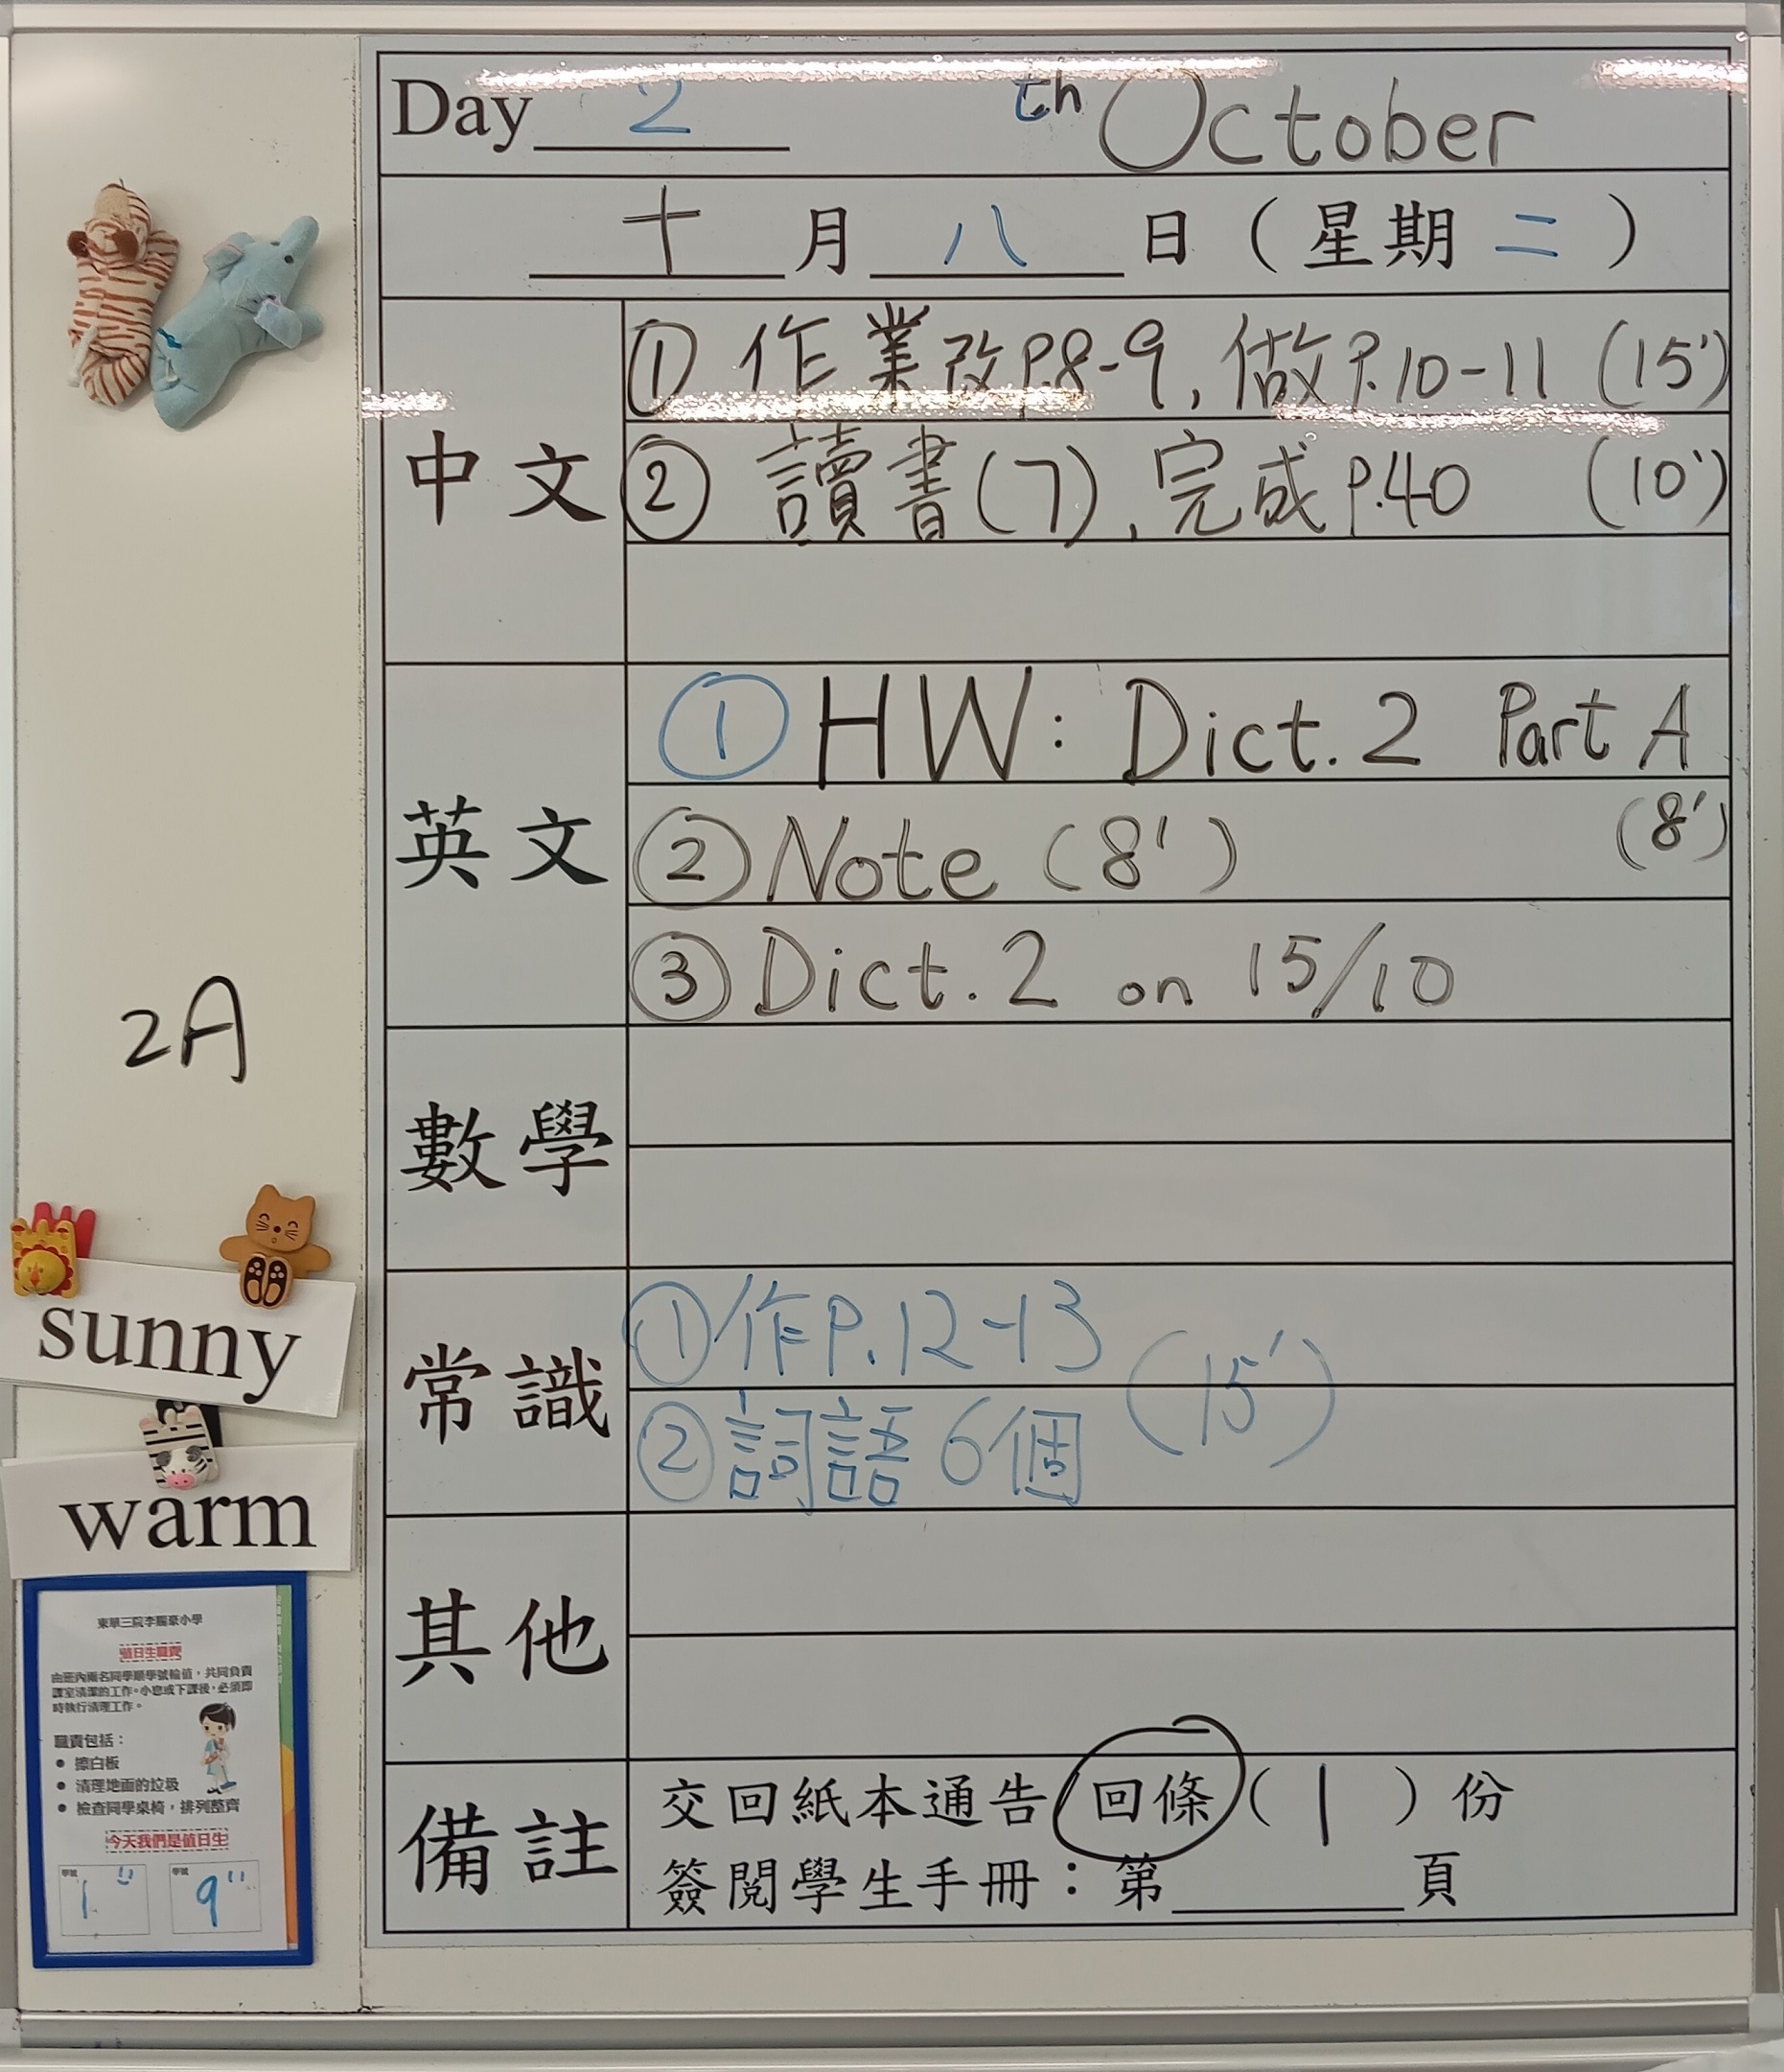 Day 2 th October
十 月 八 日 ( 星期 二 )
中文
① 作業改P.8-9, 做P.10-11 (15')
② 讀書(7), 完成P.40 (10')
英文
① HW: Dict. 2 Part A
(8')
② Note (8')
③ Dict. 2 on 15/10
數學
常識
① 作P.12-13
② 詞語6個 (15')
其他
備註
交回紙本通告/回條 ( 1 ) 份
簽閱學生手冊：第 頁
2A
sunny
warm
東華三院李賜豪小學
值日生職責
由班內兩名同學順學號輪值，共同負責
課室清潔的工作。小息或下課後，必須即
時執行清理工作。
職責包括：
● 擦白板
● 清理地面的垃圾
● 檢查同學桌椅，排列整齊
今天我們是值日生
學號 1 學號 9